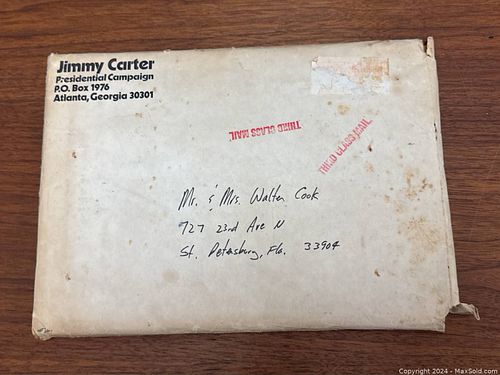 Jimmy Carter
Presidential Campaign
P.O. Box 1976
Atlanta, Georgia 30301
THIRD CLASS MAIL
THIRD CLASS MAIL
Mr. & Mrs. Walter Cook
727 23rd Ave N
St. Petersburg, Fla. 33904
Copyright 2024 - MaxSold.com